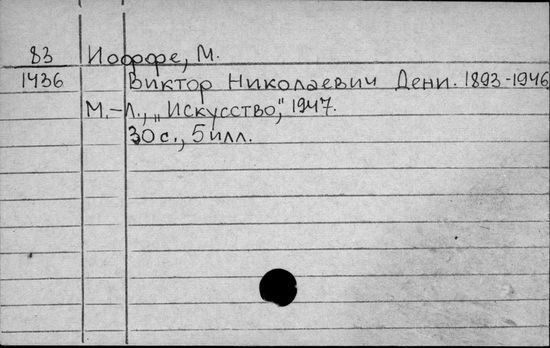 83 Иоффе, М.
1436 Виктор Николаевич Дени. 1893-1946
М.-Л., „Искусство,” 1947.
30 с., 5 илл.